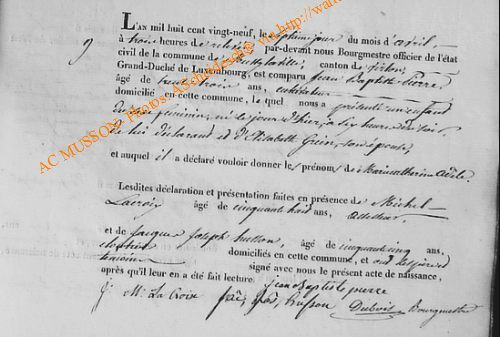 L'AN mil huit cent vingt-neuf, le septieme jour du mois d'avril,
9 à trois heures de relevée par-devant nous Bourgmestre officier de l'état
civil de la commune de canton de Virton,
Grand-Duché de Luxembourg, est comparu Jean Baptiste Pierre
âgé de trente trois ans, cultivateur
domicilié en cette commune, lequel nous a présenté un enfant
du sexe féminin, né le jour d'hier, à six heures du soir
de lui déclarant et d'Elisabeth son épouse,
et auquel il a déclaré vouloir donner le prénom de Adèle.
Lesdites déclaration et présentation faites en présence de Michel
Lacroix âgé de cinquante huit ans,
et de Jacques Joseph Husson, âgé de cinquante cinq ans,
domiciliés en cette commune, et ont les père et
témoins signé avec nous le présent acte de naissance,
après qu'il leur en a été fait lecture. jean Baptiste pierre
M. La Croix Husson Dubois Bourgmestre
AC MUSSON Photos: via http://www